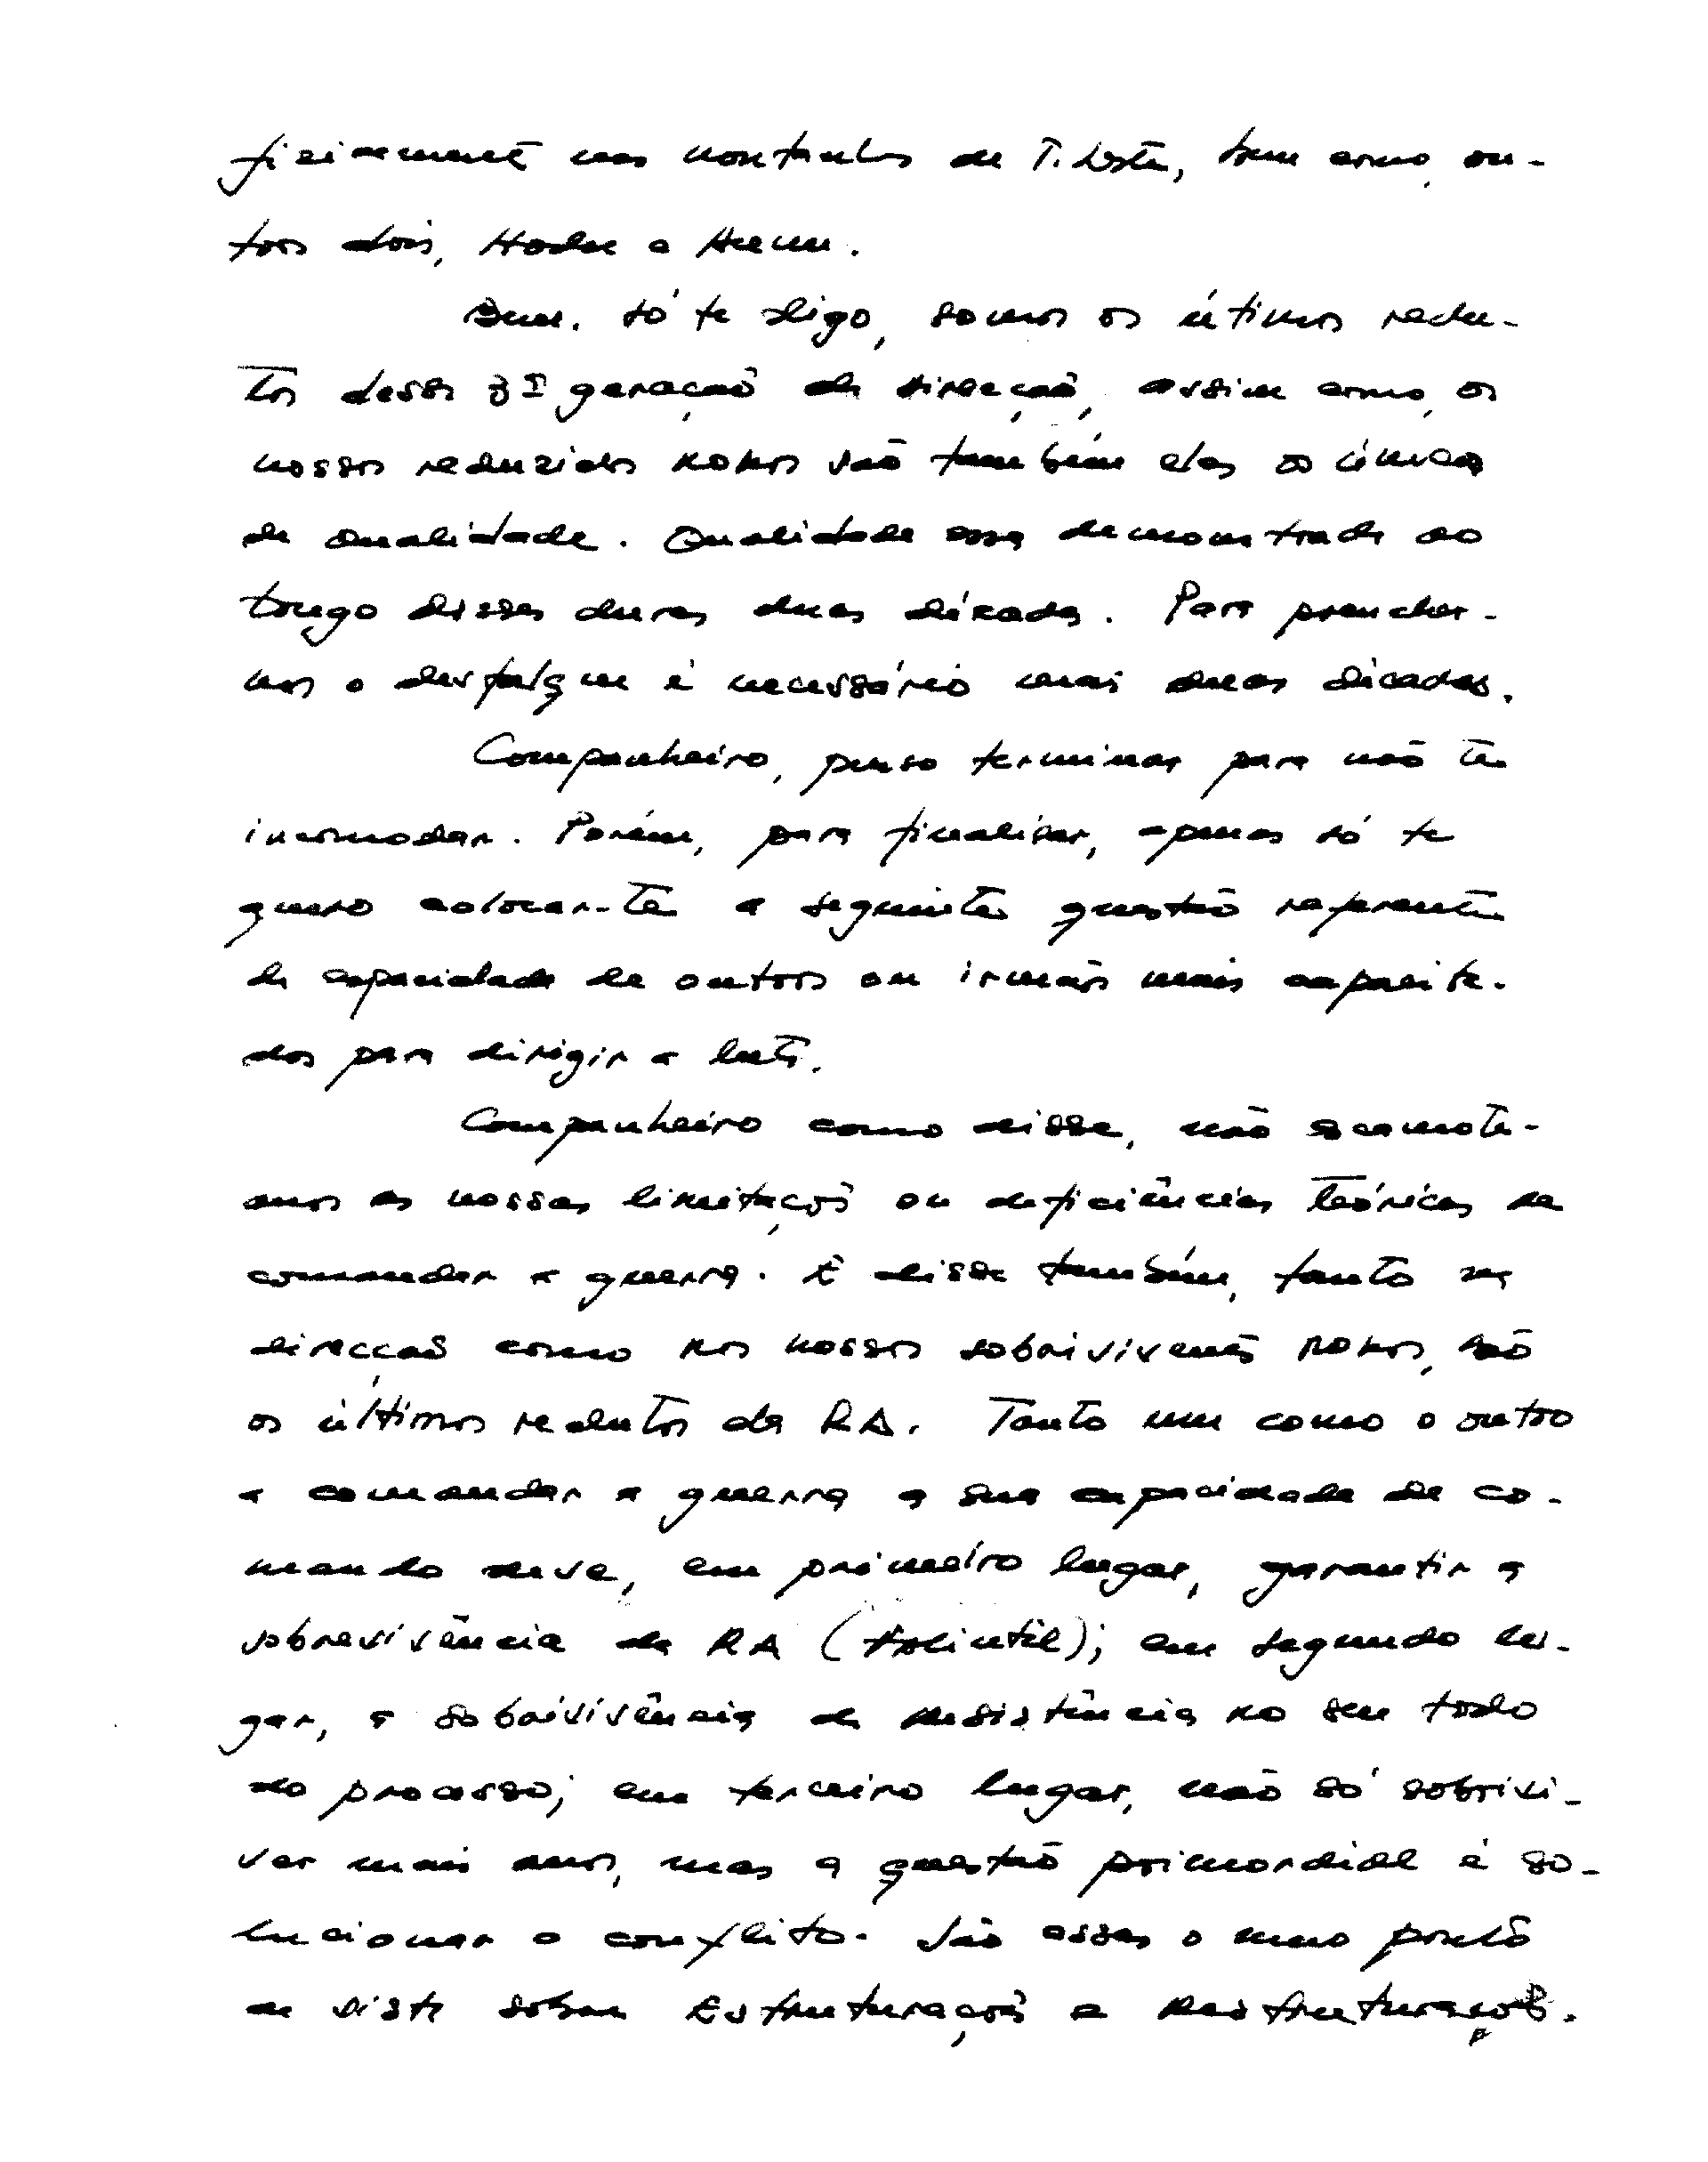 ficiamente nas montanhas de T. Leste, bem como, ou-
tros dois, Hodu e Hu
Bem. Só te digo, somos os útimos redu-
tos dessa 3ª geração da direcção, assim como, os
nossos reduzidos homens são também eles os únicos
de qualidade. Qualidade essa demonstrada ao
longo desses duras duas décadas. Para preencher-
mos o desfalque é necessário mais duas décadas.
Companheiro, penso terminar para não te
incomodar. Porém, para finalizar, apenas só te
quero colocar-te a seguinte questão referente
da capacidade de outros ou irmãos mais capacita-
dos para dirigir a luta.
Companheiro como disse, não escamote-
amos as nossas limitaçõs ou deficiências teóricas de
comandar a guerra. E disse também, tanto na
direcção como nos nossos sobrivivents homens, são
os últimos redutos da RA. Tanto um como o outro
a comandar a guerra a sua capacidade de co-
mando deve, em primeiro lugar, garantir a
sobrevivência da RA (Falintil); em segundo lu-
gar, a sobrivivência da resistência no seu todo
do processo; em terceiro lugar, não só sobrivi-
ver mais anos, mas a questão primordial é so-
lucionar o conflito. São esses o meu ponto
de vista sobre Estruturaçõs e Restruturaçõs.